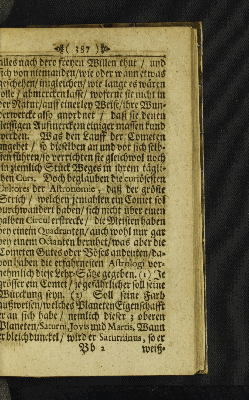 ( 387 )
alles nach dero freyen Willen thut / und
sich von niemanden / wie oder wann etwas
geschehen / imgleichen / wie lange es wären
solle / abmercken lasse / woferne sie nicht in
der Natur / auff einerley Weise / ihre Wun-
derwercke also anordnet / daß sie denen
fleissigen Auffmercken einiger massen kund
werden. Was den Lauff der Cometen
umgebet / so dieselben an und vor sich selb-
sten führen / so verrichten sie gleichwol noch
ein ziemlich Stück Weges in ihrem täg-
lichen Curs. Doch beglauben die vornehmsten
Doctores der Astronomie, daß der gröste
Strich / welchen jemahlen ein Comet sol
durchwandert haben / sich nicht über einen
halben Circul erstrecke / die Meisten haben
bey einem Quadranten / auch wohl nur gar
bey einem Octanten beruhet / was aber die
Cometen Gutes oder Böses andeuten / da-
von haben die erfahrnesten Astrologi vor-
nehmlich diese Lehr-Sätze gegeben. (1) Je
grösser ein Comet / je gefährlicher soll seine
Würckung seyn. (2) Soll seine Farb
ausweisen / welches Planeten Eigenschafft
er an sich habe / nemlich dieser 3 oberen
Planeten / Saturni, Jovis und Martis. Wann
er bleichdunckel / wird er Saturninus, so er
Bb 2 weiß-